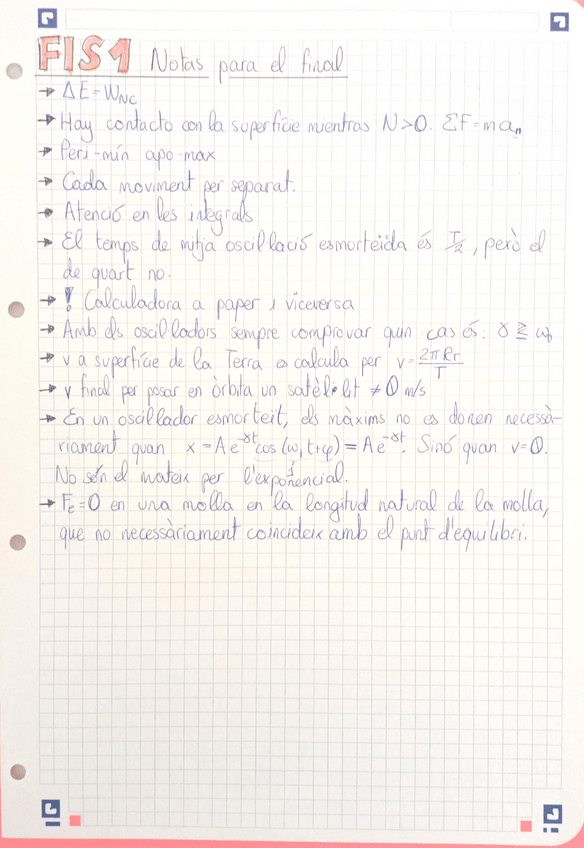 FIS1 Notas para el final
→ ΔE = W_NC
→ Hay contacto con la superfície mientras N>0. ΣF = m a_n
→ Peri-mín apo-max
→ Cada moviment per separat.
→ Atenció en les integrals
→ El temps de mitja oscil·lació esmorteïda és T/2, però el
de quart no.
→ ! Calculadora a paper i viceversa
→ Amb els oscil·ladors sempre comprovar quin cas és: γ ≷ ω₀
→ v a superfície de la Terra es calcula per v = 2πR_T/T
→ v final per posar en òrbita un satèl·lit ≠ 0 m/s
→ En un oscil·lador esmorteït, els màxims no es donen necessà-
riament quan x = A e^-γt cos(ω₁t+φ) = A e^-γt. Sinó quan v=0.
1
No són el mateix per l'exponencial.
→ F_e = 0 en una molla en la longitud natural de la molla,
que no necessàriament coincideix amb el punt d'equilibri.